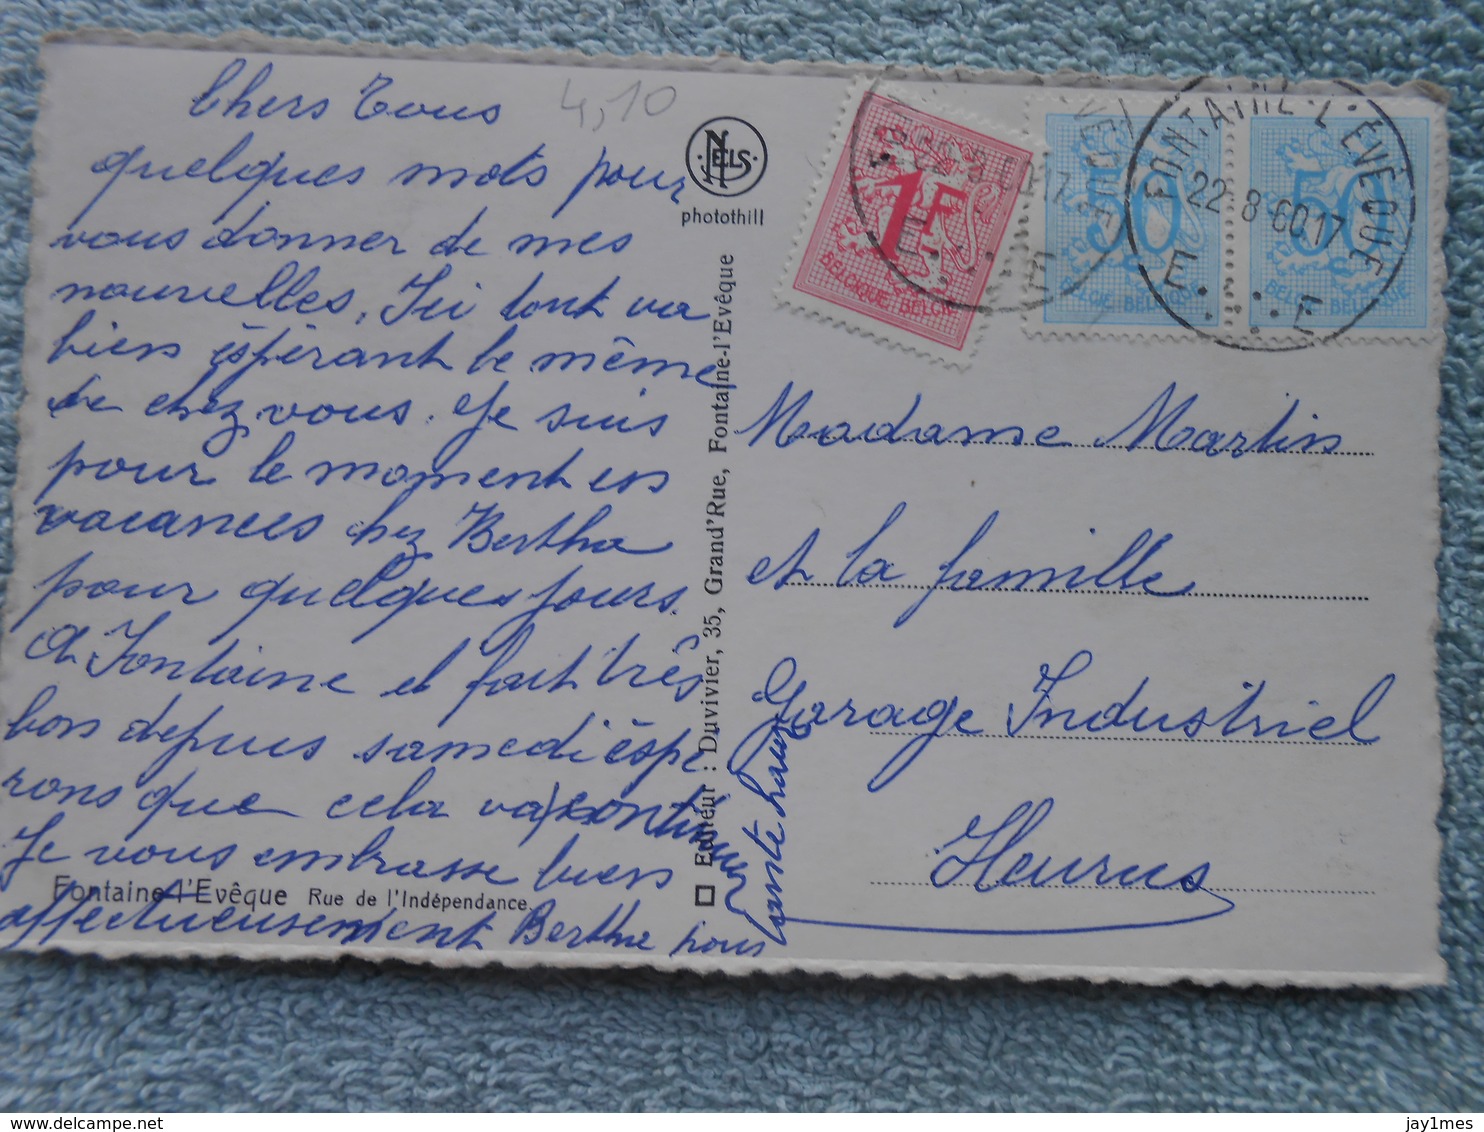 Chers Tous
4,10
quelques mots pour
vous donner de mes
nouvelles, Ici tout va
bien éspérant le même
de chez vous. Je suis
pour le moment en
vacances chez Bertha
pour quelques jours.
à Fontaine il fait très
bon depuis samedi éspé
rons que cela va continuer
Je vous embrasse bien
affectueusement Bertha nous
Fontaine-l'Evêque Rue de l'Indépendance
NELS
photothill
Editeur : Duvivier, 35, Grand'Rue, Fontaine-l'Evêque
1F
BELGIQUE BELGIE
50
BELGIE BELGIQUE
50
BELGIE BELGIQUE
FONTAINE-L'EVEQUE
22-8-60.17
E E
Madame Martin
et la famille
Garage Industriel
Heurus
delcampe.net
jay1mes